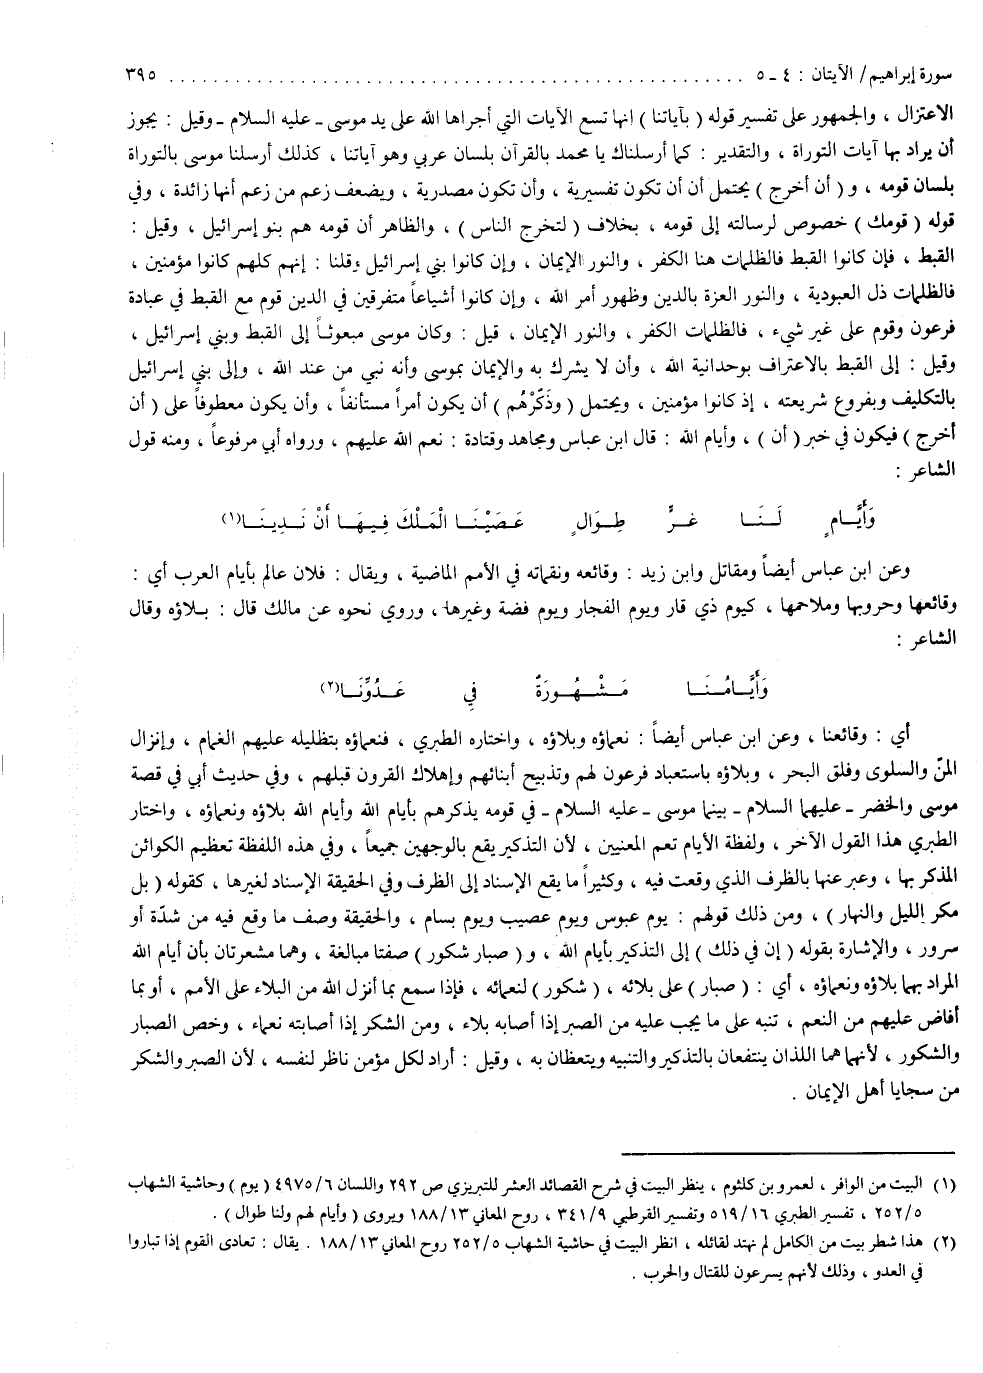 سورة إبراهيم / الآيتان : ٤ ـ ٥ ........................................................... ٣٩٥
الاعتزال ، والجمهور على تفسير قوله ( بآياتنا ) انها تسع الآيات التي أجراها الله على يد موسى ـ عليه السلام ـ وقيل : يجوز
أن يراد بها آيات التوراة ، والتقدير : كما أرسلناك يا محمد بالقرآن بلسان عربي وهو آياتنا ، كذلك أرسلنا موسى بالتوراة
بلسان قومه ، و ( أن أخرج ) يحتمل أن أن تكون تفسيرية ، وأن تكون مصدرية ، ويضعف زعم من زعم أنها زائدة ، وفي
قوله ( قومك ) خصوص لرسالته إلى قومه ، بخلاف ( لتخرج الناس ) ، والظاهر أن قومه هم بنو إسرائيل ، وقيل :
القبط ، فإن كانوا القبط فالظلمات هنا الكفر ، والنور الإيمان ، وإن كانوا بني إسرائيل وقلنا : إنهم كلهم كانوا مؤمنين ،
فالظلمات ذل العبودية ، والنور العزة بالدين وظهور أمر الله ، وإن كانوا أشياعاً متفرقين في الدين قوم مع القبط في عبادة
فرعون وقوم على غير شيء ، فالظلمات الكفر ، والنور الإيمان ، قيل : وكان موسى مبعوثاً إلى القبط وبني إسرائيل ،
وقيل : إلى القبط بالاعتراف بوحدانية الله ، وأن لا يشرك به والإيمان بموسى وأنه نبي من عند الله ، وإلى بني إسرائيل
بالتكليف وبفروع شريعته ، إذ كانوا مؤمنين ، ويحتمل ( وذَكّرْهُم ) أن يكون أمراً مستأنفاً ، وأن يكون معطوفاً على ( أن
أخرج ) فيكون في خبر ( أن ) ، وأيام الله : قال ابن عباس ومجاهد وقتادة : نعم الله عليهم ، ورواه أبي مرفوعاً ، ومنه قول
الشاعر :
وَأَيَّامٍ لَنَا غرٍّ طِوَالٍ عَصَيْنَا الْمَلْكَ فِيهَا أَنْ نَدِينَا(١)
وعن ابن عباس أيضاً ومقاتل وابن زيد : وقائعه ونقماته في الأمم الماضية ، ويقال : فلان عالم بأيام العرب أي :
وقائعها وحروبها وملاحمها ، كيوم ذي قار ويوم الفجار ويوم فضة وغيرها ، وروي نحوه عن مالك قال : بلاؤه وقال
الشاعر :
وَأَيَّامُنَا مَشْهُورَةٌ فِي عَدُوِّنَا(٢)
أي : وقائعنا ، وعن ابن عباس أيضاً : نعماؤه وبلاؤه ، واختاره الطبري ، فنعماؤه بتظليله عليهم الغمام ، وإنزال
المنّ والسلوى وفلق البحر ، وبلاؤه باستعباد فرعون لهم وتذبيح أبنائهم وإهلاك القرون قبلهم ، وفي حديث أبي في قصة
موسى والخضر ـ عليهما السلام ـ بينما موسى ـ عليه السلام ـ في قومه يذكرهم بأيام الله وأيام الله بلاؤه ونعماؤه ، واختار
الطبري هذا القول الآخر ، ولفظة الأيام تعم المعنيين ، لأن التذكير يقع بالوجهين جميعاً ، وفي هذه اللفظة تعظيم الكوائن
المذكر بها ، وعبر عنها بالظرف الذي وقعت فيه ، وكثيراً ما يقع الإسناد إلى الظرف وفي الحقيقة الإسناد لغيرها ، كقوله ( بل
مكر الليل والنهار ) ، ومن ذلك قولهم : يوم عبوس ويوم عصيب ويوم بسام ، والحقيقة وصف ما وقع فيه من شدّة أو
سرور ، والإشارة بقوله ( إن في ذلك ) إلى التذكير بأيام الله ، و ( صبار شكور ) صفتا مبالغة ، وهما مشعرتان بأن أيام الله
المراد بهما بلاؤه ونعماؤه ، أي : ( صبار ) على بلائه ، ( شكور ) لنعمائه ، فإذا سمع بما أنزل الله من البلاء على الأمم ، أو بما
أفاض عليهم من النعم ، تنبه على ما يجب عليه من الصبر إذا أصابه بلاء ، ومن الشكر إذا أصابته نعماء ، وخص الصبار
والشكور ، لأنهما هما اللذان ينتفعان بالتذكير والتنبيه ويتعظان به ، وقيل : أراد لكل مؤمن ناظر لنفسه ، لأن الصبر والشكر
من سجايا أهل الإيمان .
(١) البيت من الوافر ، لعمرو بن كلثوم ، ينظر البيت في شرح القصائد العشر للتبريزي ص ٢٩٢ واللسان ٤٩٧٥/٦ ( يوم ) وحاشية الشهاب
٢٥٢/٥ ، تفسير الطبري ٥١٩/١٦ وتفسير القرطبي ٣٤١/٩ ، روح المعاني ١٨٨/١٣ ويروى ( وأيام لهم ولنا طوال ) .
(٢) هذا شطر بيت من الكامل لم نهتد لقائله ، انظر البيت في حاشية الشهاب ٢٥٢/٥ روح المعاني ١٨٨/١٣ . يقال : تعادى القوم إذا تباروا
في العدو ، وذلك لأنهم يسرعون للقتال والحرب .